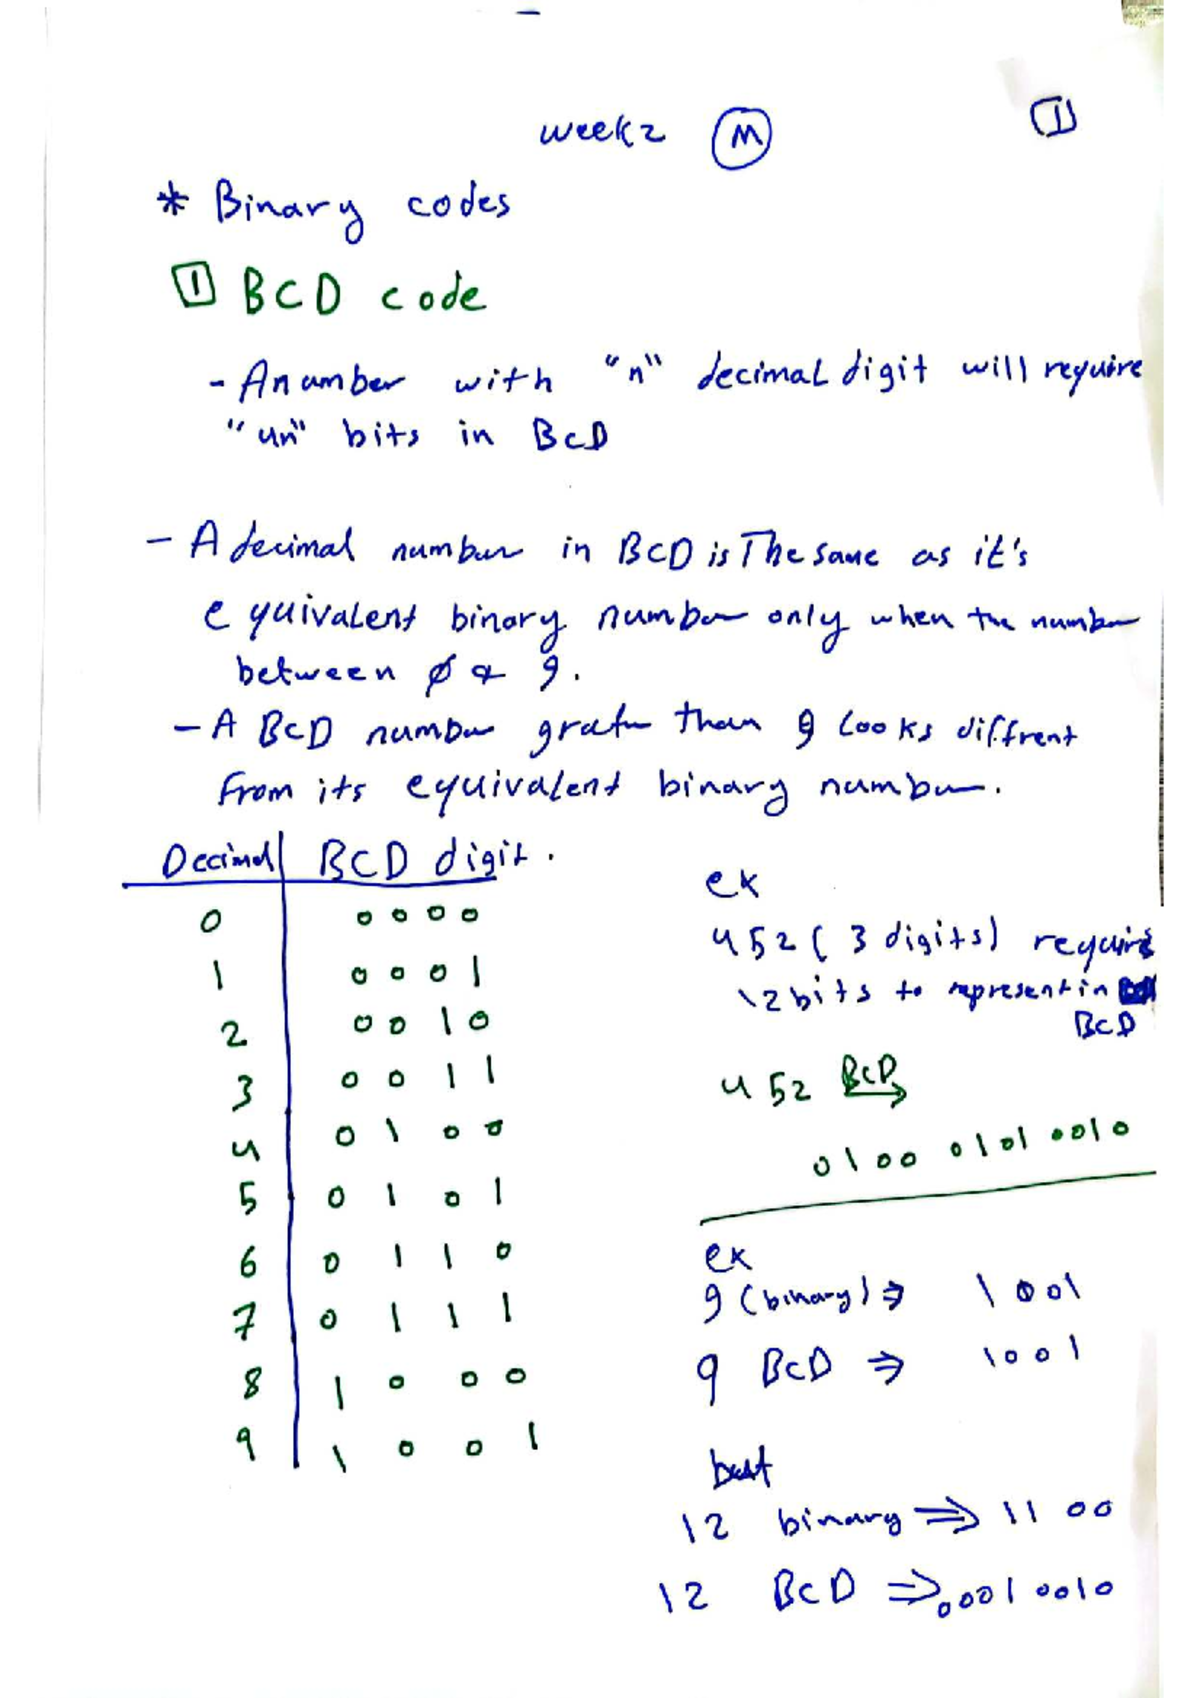 week 2 M
1
* Binary codes
1 BCD code
- A number with "n" decimal digit will require
"4n" bits in BCD
- A decimal number in BCD is The same as it's
equivalent binary number only when the number
between 0 & 9.
- A BCD number grater than 9 looks diffrent
from its equivalent binary number.
Decimal BCD digit.
0 0 0 0 0
1 0 0 0 1
2 0 0 1 0
3 0 0 1 1
4 0 1 0 0
5 0 1 0 1
6 0 1 1 0
7 0 1 1 1
8 1 0 0 0
9 1 0 0 1
ex
452 ( 3 digits) require
12 bits to represent in
BCD
452 BCD →
0100 0101 0010
ex
9 (binary) ⇒ 1001
9 BCD ⇒ 1001
but
12 binary ⇒ 1100
12 BCD ⇒ 0001 0010